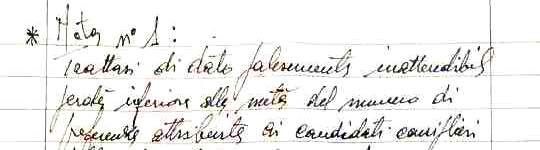 * Nota n° 1:
Trattasi di dato palesemente inattendibile
perché inferiore alla metà del numero di
preferenze attribuite ai candidati consiglieri